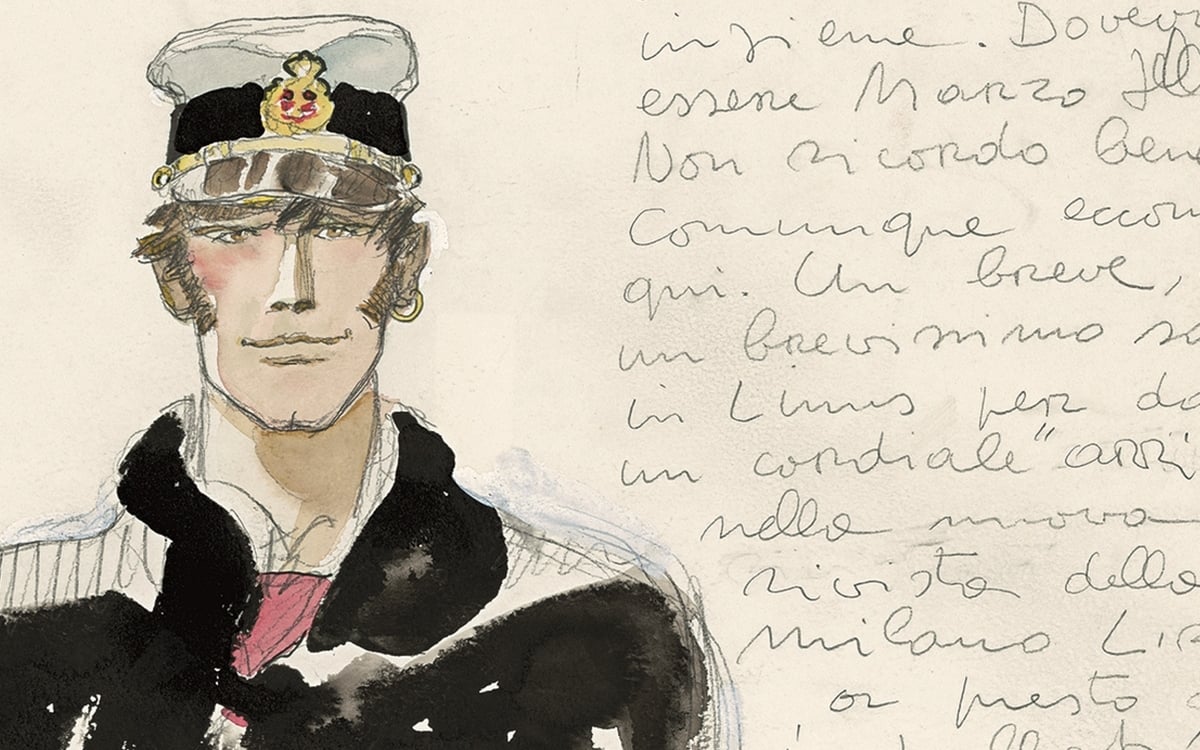 insieme. Dovev
essere Marzo
Non ricordo ben
Comunque eccom
qui. Un breve,
un brevissimo sa
in Linus per da
un cordiale "arri
nella nuova
rivista della
milano Li
or presto